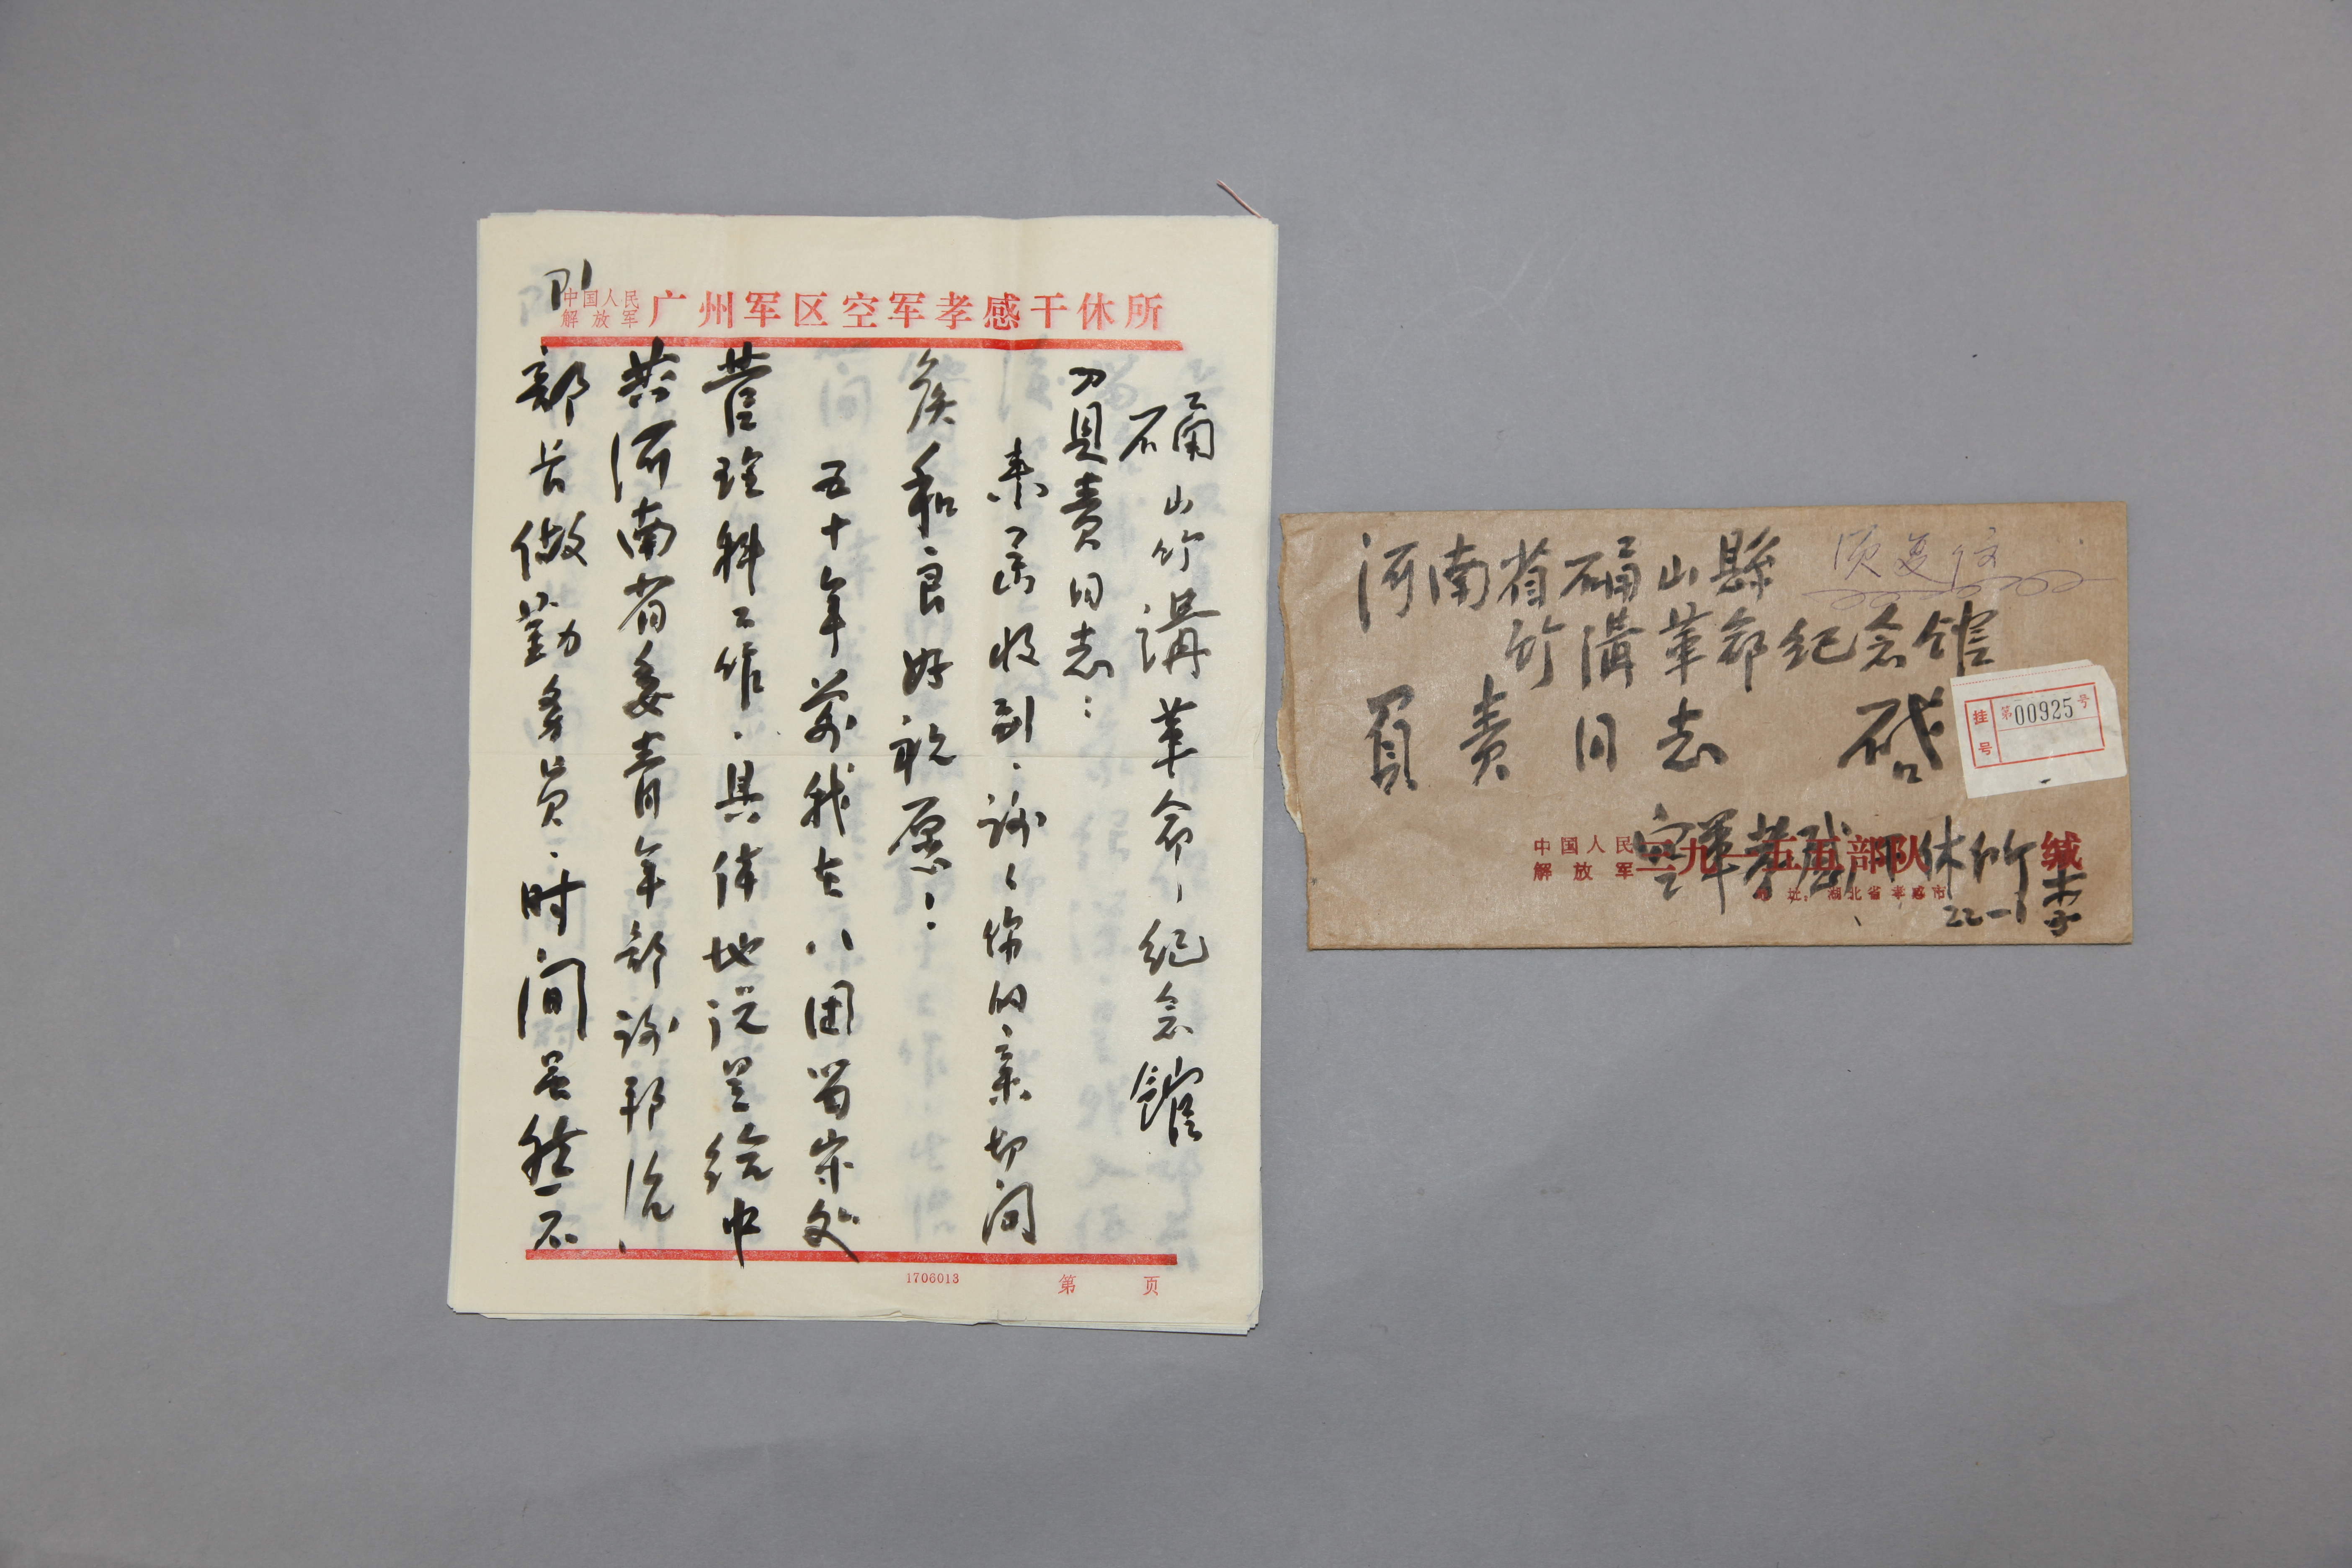 P1
中国人民
解放军
广州军区空军孝感干休所
确山竹溝革命纪念館
負责同志：
来函收到，谢谢你的亲切问
候和良好祝愿：
五十年前我在八团留守处
管理科工作，具体地说是给中
共河南省委青年部谢邦治
部长做勤务员，时间虽然不
1706013
第 页
河南省确山縣
竹溝革命纪念馆
負责同志 启
须复信
挂号
第00925号
中国人民
解放军
三九一五五部队 缄
空軍孝感干休所 李
址：湖北省孝感市
22-1